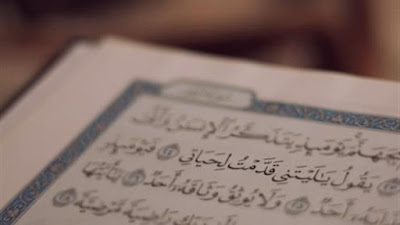 يَوْمَئِذٍ يَتَذَكَّرُ الْإِنسَٰنُ وَأَنَّىٰ
يَقُولُ يَٰلَيْتَنِى قَدَّمْتُ لِحَيَاتِى فَيَوْمَئِذٍ
أَحَدٌ وَلَا يُوثِقُ وَثَاقَهُۥٓ أَحَدٌ يَٰٓأَيَّتُهَا
رَاضِيَةً مَّرْضِيَّةً